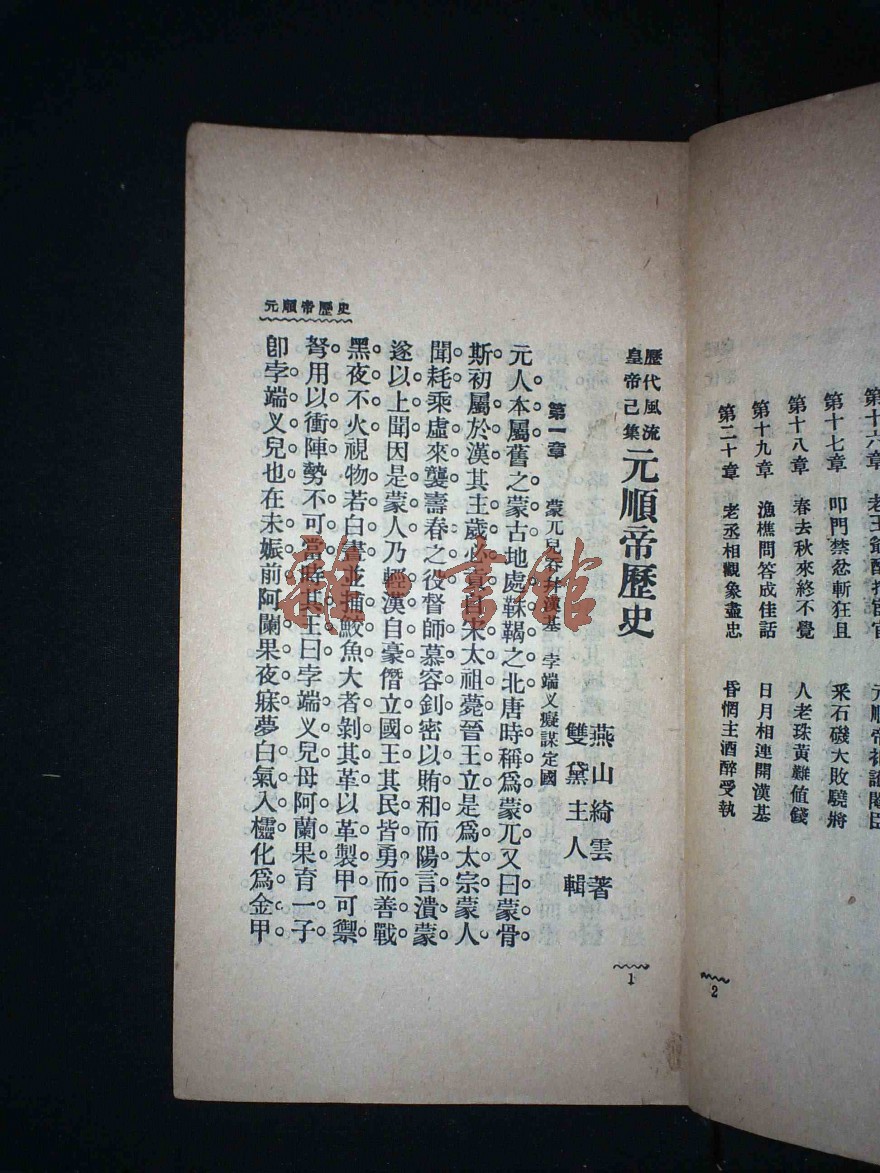 第十六章 老王爺醉打宦官 元順帝初誅閹臣
第十七章 叩門禁忿斬狂且 采石磯大敗驍將
第十八章 春去秋來終不覺 人老珠黃難值錢
第十九章 漁樵問答成佳話 日月相連開漢基
第二十章 老丞相觀象盡忠 昏惘主酒醉受執
2
歷代風流
皇帝己集
元順帝歷史
燕山綺雲著
雙黛主人輯
第一章 蒙兀兒 漢基 孛端义癡謀定國
元人本屬舊之蒙古地處靺鞨之北唐時稱爲蒙兀又曰蒙骨
斯初屬於漢其主歲必貢自宋太祖薨晉王立是爲太宗蒙人
聞耗乘虛來襲壽春之役督師慕容釗密以賄和而陽言潰蒙
遂以上聞因是蒙人乃輕漢自豪僭立國王其民皆勇而善戰
黑夜不火視物若白晝並捕鮫魚大者剝其革以革製甲可禦
弩用以衝陣勢不可當時其王曰孛端义兒母阿蘭果育一子
卽孛端义兒也在未娠前阿蘭果夜寐夢白氣入櫺化爲金甲
元順帝歷史
1
雜·書館